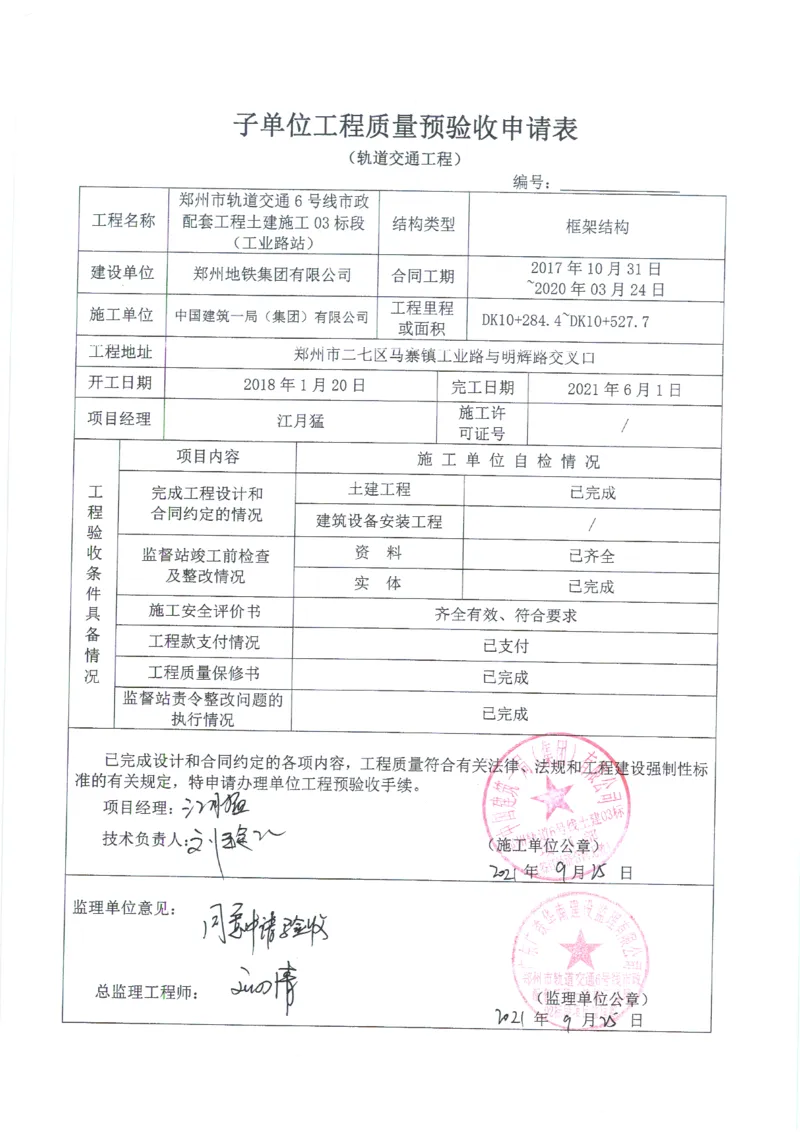 子单位工程质量预验收申请表
（轨道交通工程）
编号：
工程名称
郑州市轨道交通 6 号线市政
配套工程土建施工 03 标段
（工业路站）
结构类型
框架结构
建设单位
郑州地铁集团有限公司
合同工期
2017 年 10 月 31 日
~2020 年 03 月 24 日
施工单位
中国建筑一局（集团）有限公司
工程里程
或面积
DK10+284.4~DK10+527.7
工程地址
郑州市二七区马寨镇工业路与明辉路交叉口
开工日期
2018 年 1 月 20 日
完工日期
2021 年 6 月 1 日
项目经理
江月猛
施工许
可证号
/
工程验收条件具备情况
项目内容
施 工 单 位 自 检 情 况
完成工程设计和
合同约定的情况
土建工程
已完成
建筑设备安装工程
/
监督站竣工前检查
及整改情况
资 料
已齐全
实 体
已完成
施工安全评价书
齐全有效、符合要求
工程款支付情况
已支付
工程质量保修书
已完成
监督站责令整改问题的
执行情况
已完成
已完成设计和合同约定的各项内容，工程质量符合有关法律、法规和工程建设强制性标
准的有关规定，特申请办理单位工程预验收手续。
项目经理：江月猛
技术负责人：
（施工单位公章）
2021 年 9 月 15 日
监理单位意见：
同意申请验收
总监理工程师：
（监理单位公章）
2021 年 9 月 25 日